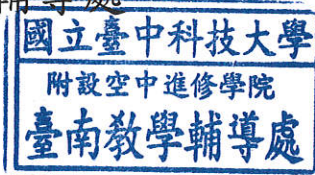 輔導處
國立臺中科技大學
附設空中進修學院
臺南教學輔導處